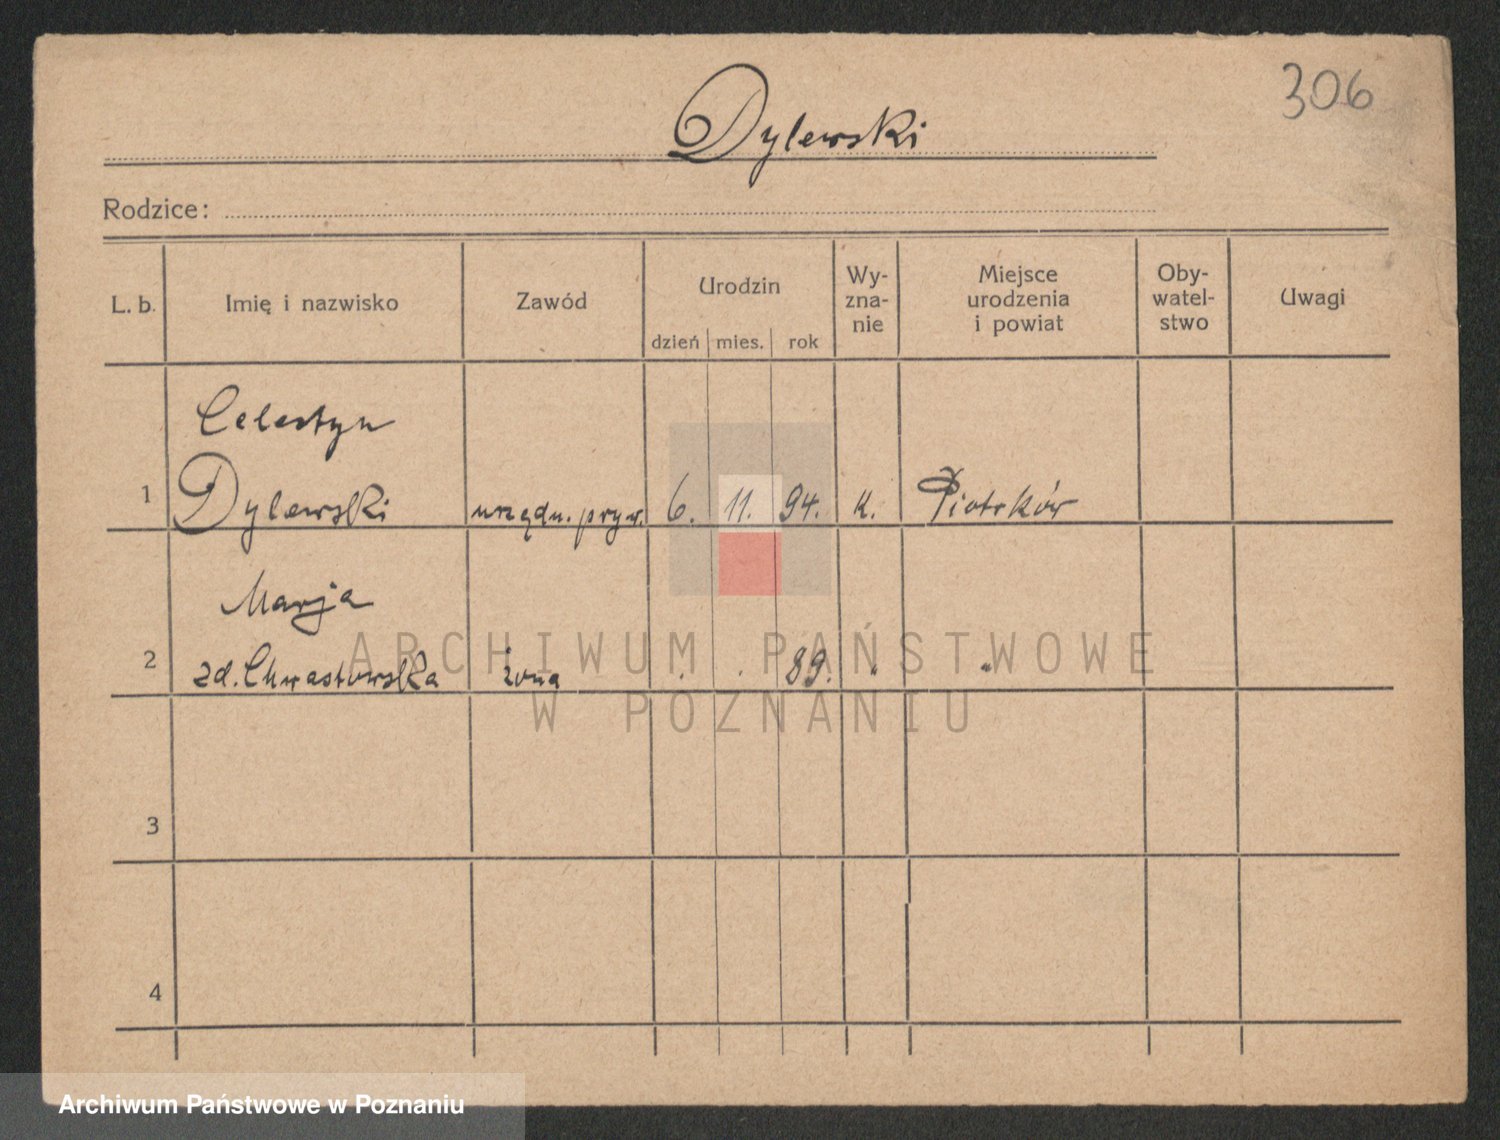 306
Dylewski
Rodzice:
L. b.
Imię i nazwisko
Zawód
Urodzin
dzień mies. rok
Wy-
zna-
nie
Miejsce
urodzenia
i powiat
Oby-
watel-
stwo
Uwagi
Celestyn
1 Dylewski urzędn. pryw. 6. 11. 94. k. Piotrków
Marja
2 zd. Chwastowska żona . . 89. " "
3
4
ARCHIWUM PAŃSTWOWE
W POZNANIU
Archiwum Państwowe w Poznaniu